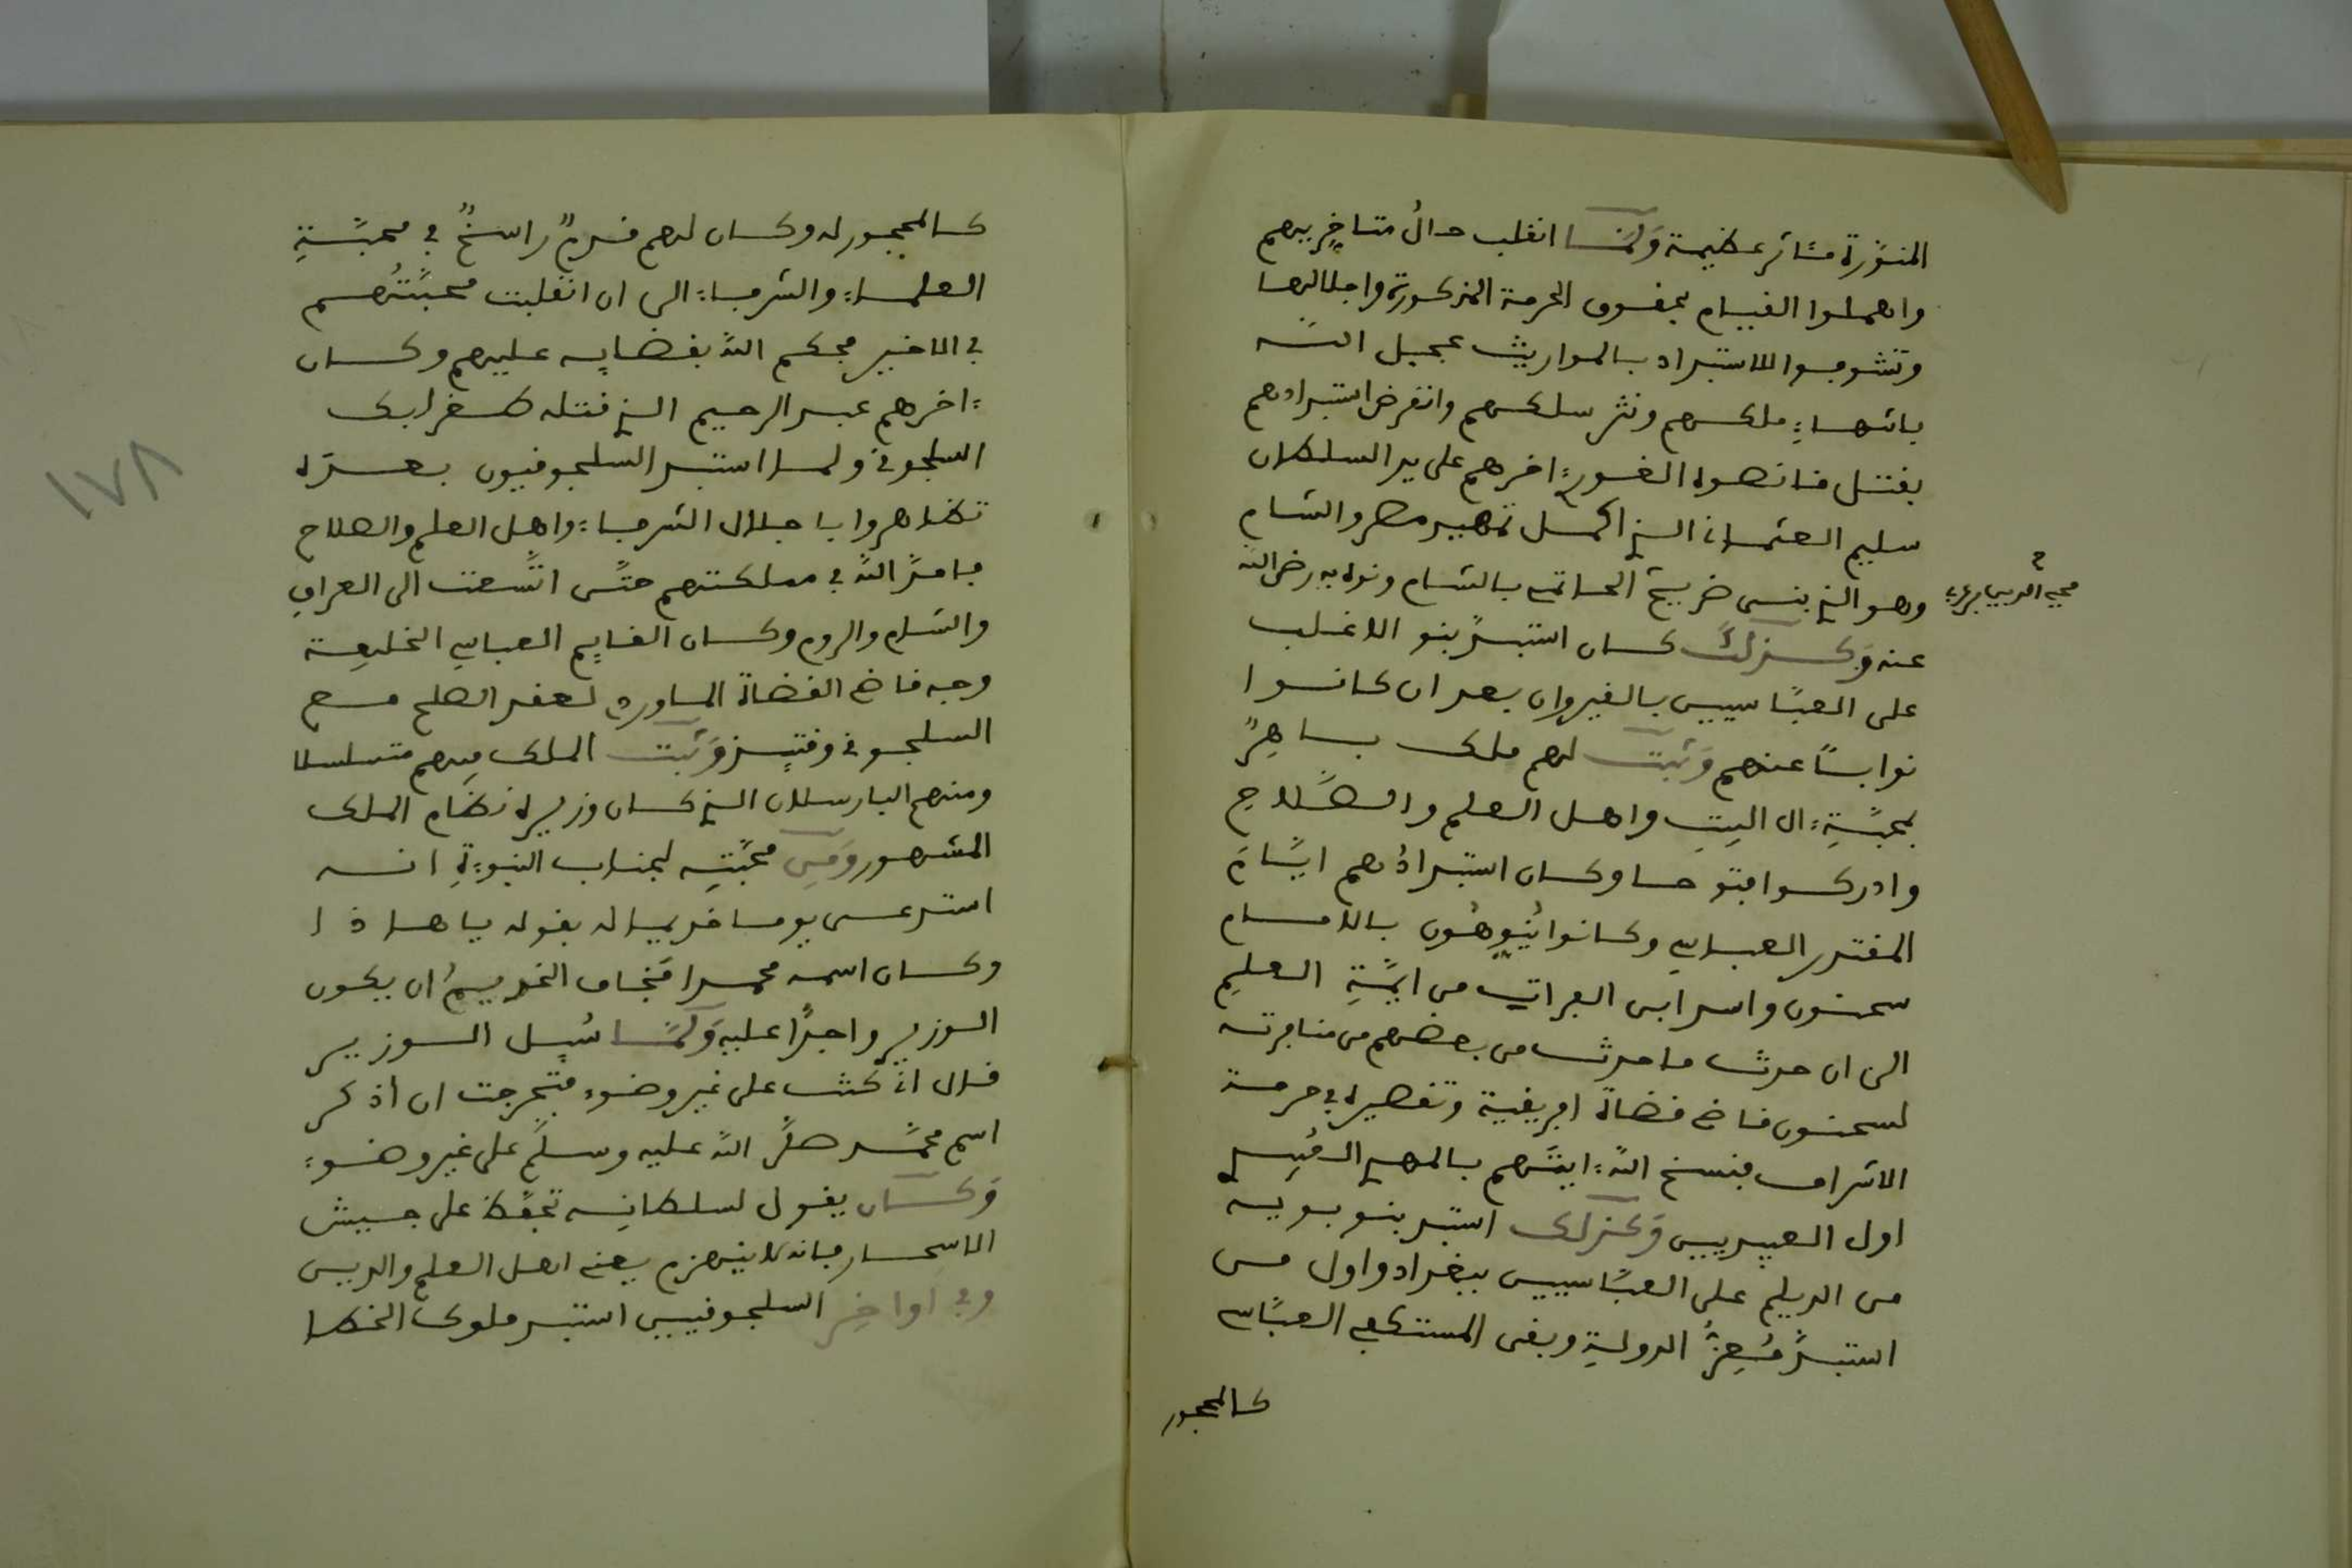 المنوّرة مئاثر عظيمة ولمّا انقلب حالُ متأخريهم
واهملوا القيام بحقوق الحرمة المذكورة واجلالها
وتشوفوا للاستبداد بالمواريث عجّل اللّه
بانتهاء ملكهم ونثر سلكهم وانقرض استبدادهم
بقتل قانصوه الغوري ءاخرهم على يد السلطان
سليم العثماني الذي اكمل تمهيد مصر والشام
وهو الذي بنى ضريح الحاتمي بالشام ونوه به رضي اللّه
محيي الدين بن عربي
عنه وكذلك كان استبدّ بنو الاغلب
على العبّاسيين بالقيروان بعد ان كانوا
نوابًا عنهم وثبت لهم ملك باهرٌ
بمحبّةِ ءال البيتِ واهل العلم والصّلاح
وادركوا فتوحا وكان استبدادُهم ايّام
المقتدر العباسي وكانوا يُنوّهُون بالامام
سحنون واسد ابن الفرات من ايمّةِ العلم
الى ان حدث ما حدث من بعضهم من منافرته
لسحنون قاضي قضاة افريقية وتقصيره في حرمة
الاشراف فنسخ اللّه ءايتهم بالمهدي العُبيدي
اول العبيديين وكذلك استبد بنو بويه
من الديلم على العبّاسيين ببغداد واول من
استبدّ مُعِزُّ الدولةِ وبقى المستكفي العبّاسي
كالمحجور
كالمحجور له وكان لهم قدمٌ راسخٌ في محبّةِ
العلماء والشرفاء الى ان انقلبت محبّتُهم
في الاخير فحكم اللّه بقضايه عليهم وكان
ءاخرهم عبد الرحيم الذي قتله طغرابك
السلجوقي ولما استبد السلجوقيون بعده
تظاهروا باجلال الشرفاء واهل العلم والصلاح
فامدّ اللّه في مملكتهم حتّى اتّسعت الى العراق
والشام والروم وكان القايم العباسي الخليفة
وجه قاضي القضاة الماوردي لعقد الصلح مع
السلجوقي وقتيذ وثبت الملك فيهم متسلسلا
ومنهم البارسلان الذي كان وزيره نظام الملك
المشهور ومن محبّتِه لجناب النبوءةِ انه
استدعى يوما خديما له بقوله يا هاذا
وكان اسمه محمدا فخاف الخديمُ ان يكون
الوزير واجدًا عليه ولمّا سُيل الوزير
قال اني كنت على غير وضوء فتحرجت ان اذكر
اسم محمّد صلّى اللّه عليه وسلّم على غير وضوء
وكان يقول لسلطانِه تحفّظ على جيش
الاسحار فانه لا ينهزم يعني اهل العلم والدين
وفي اواخِر السلجوقيين استبد ملوك الخطا
١٧٨